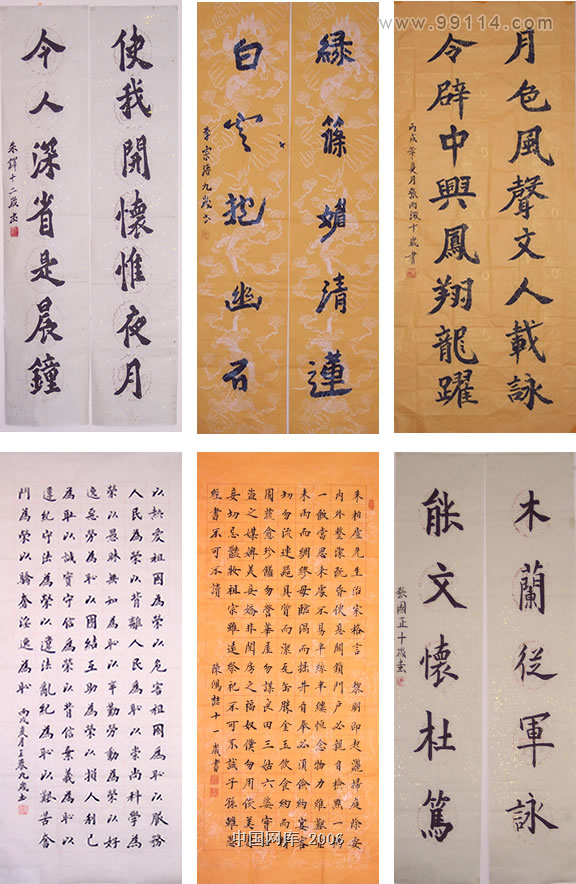 www.99114.com
使我開懷惟夜月
今人深省是晨鐘
朱鐸十二歲書
緑篠媚清蓮
白雲抱幽石
月色風聲文人載詠
令辟中興鳳翔龍躍
丙戌年夏月張雨淑十歲書
以熱愛祖國為榮以危害祖國為恥以服務
人民為榮以背離人民為恥以崇尚科學為
榮以愚昧無知為恥以辛勤勞動為榮以好
逸惡勞為恥以團結互助為榮以損人利己
為恥以誠實守信為榮以背信棄義為恥以
遵紀守法為榮以違法亂紀為恥以艱苦奮
鬥為榮以驕奢淫逸為恥
丙戌夏月王晨九歲書
朱柏廬先生治家格言 黎明即起灑掃庭除要
內外整潔既昏便息關鎖門戶必親自檢點一粥
一飯當思來處不易半絲半縷恒念物力維艱宜
未雨而綢繆毋臨渴而掘井自奉必須儉約宴客
切勿流連器具質而潔瓦缶勝金玉飲食約而精
園蔬愈珍饈勿營華屋勿謀良田三姑六婆實淫
盜之媒婢美妾嬌非閨房之福奴僕勿用俊美妻
妾切忌艷妝祖宗雖遠祭祀不可不誠子孫雖愚
經書不可不讀
陳鴻喆十一歲書
木蘭從軍詠
能文懷杜篤
張國正十歲書
中国网库 2006